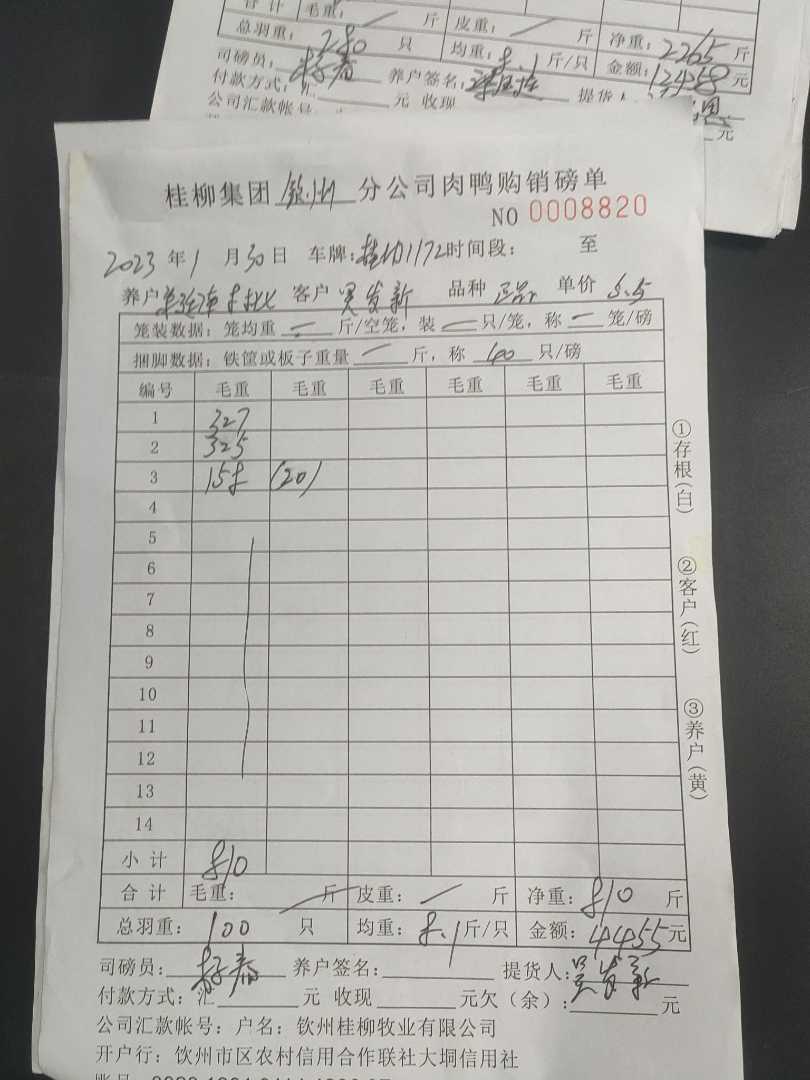 合计 毛重: 斤 皮重: 斤 净重: 2265 斤
总羽重: 280 只 均重: 8.1 斤/只 金额: 12458 元
司磅员: 养户签名:
付款方式: 汇 元 收现 提货人
公司汇款帐号 元
桂柳集团 钦州 分公司肉鸭购销磅单
NO 0008820
2023 年 1 月 30 日 车牌: 1172 时间段: 至
养户 客户 吴发新 品种 正品 单价 5.5
笼装数据: 笼均重 — 斤/空笼, 装 — 只/笼, 称 — 笼/磅
捆脚数据: 铁筐或板子重量 — 斤, 称 40 只/磅
编号 毛重 毛重 毛重 毛重 毛重 毛重
1 327
2 325
3 158 (20)
4
5
6
7
8
9
10
11
12
13
14
小计 810
合计 毛重: 斤 皮重: 斤 净重: 810 斤
总羽重: 100 只 均重: 8.1 斤/只 金额: 4455 元
司磅员: 养户签名: 提货人: 吴发新
付款方式: 汇 元 收现 元欠(余): 元
公司汇款帐号: 户名: 钦州桂柳牧业有限公司
开户行: 钦州市区农村信用合作联社大垌信用社
①存根(白)
②客户(红)
③养户(黄)